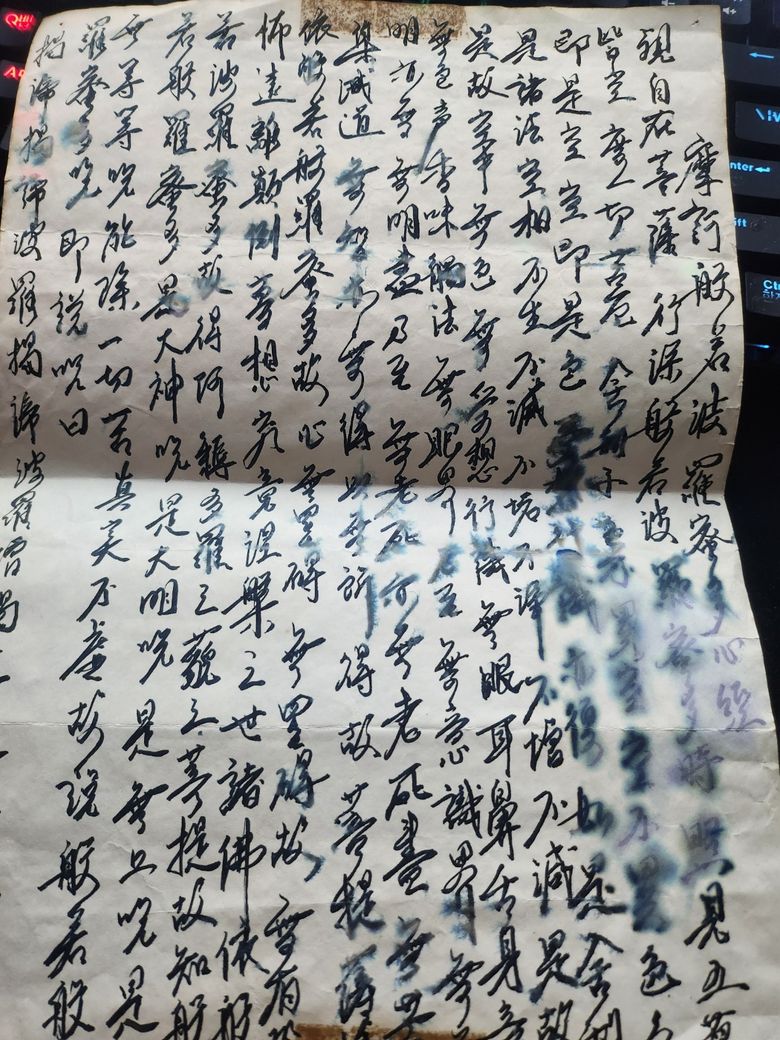 摩訶般若波羅蜜多心經
觀自在菩薩行深般若波羅蜜多時照見五
皆空度一切苦厄舍利子色不異空空不異色
即是空空即是色識亦復如是舍利
是諸法空相不生不滅不垢不淨不增不減是故
是故空中無色無受想行識無眼耳鼻舌身意
無色声香味觸法無眼界乃至無意識界無無
明亦無無明盡乃至無老死亦無老死盡無
集滅道無智亦無得以無所得故菩提薩
依般若般羅蜜多故心無罣碍無罣碍故無有
怖遠離顛倒夢想究竟涅槃三世諸佛依般
若波羅蜜多故得阿耨多羅三藐三菩提故知般
若般羅蜜多是大神呪是大明呪是無上呪是
無等等呪能除一切苦真実不虛故説般若般
羅蜜多呪即説呪曰
揭諦揭諦波羅揭諦波羅僧揭